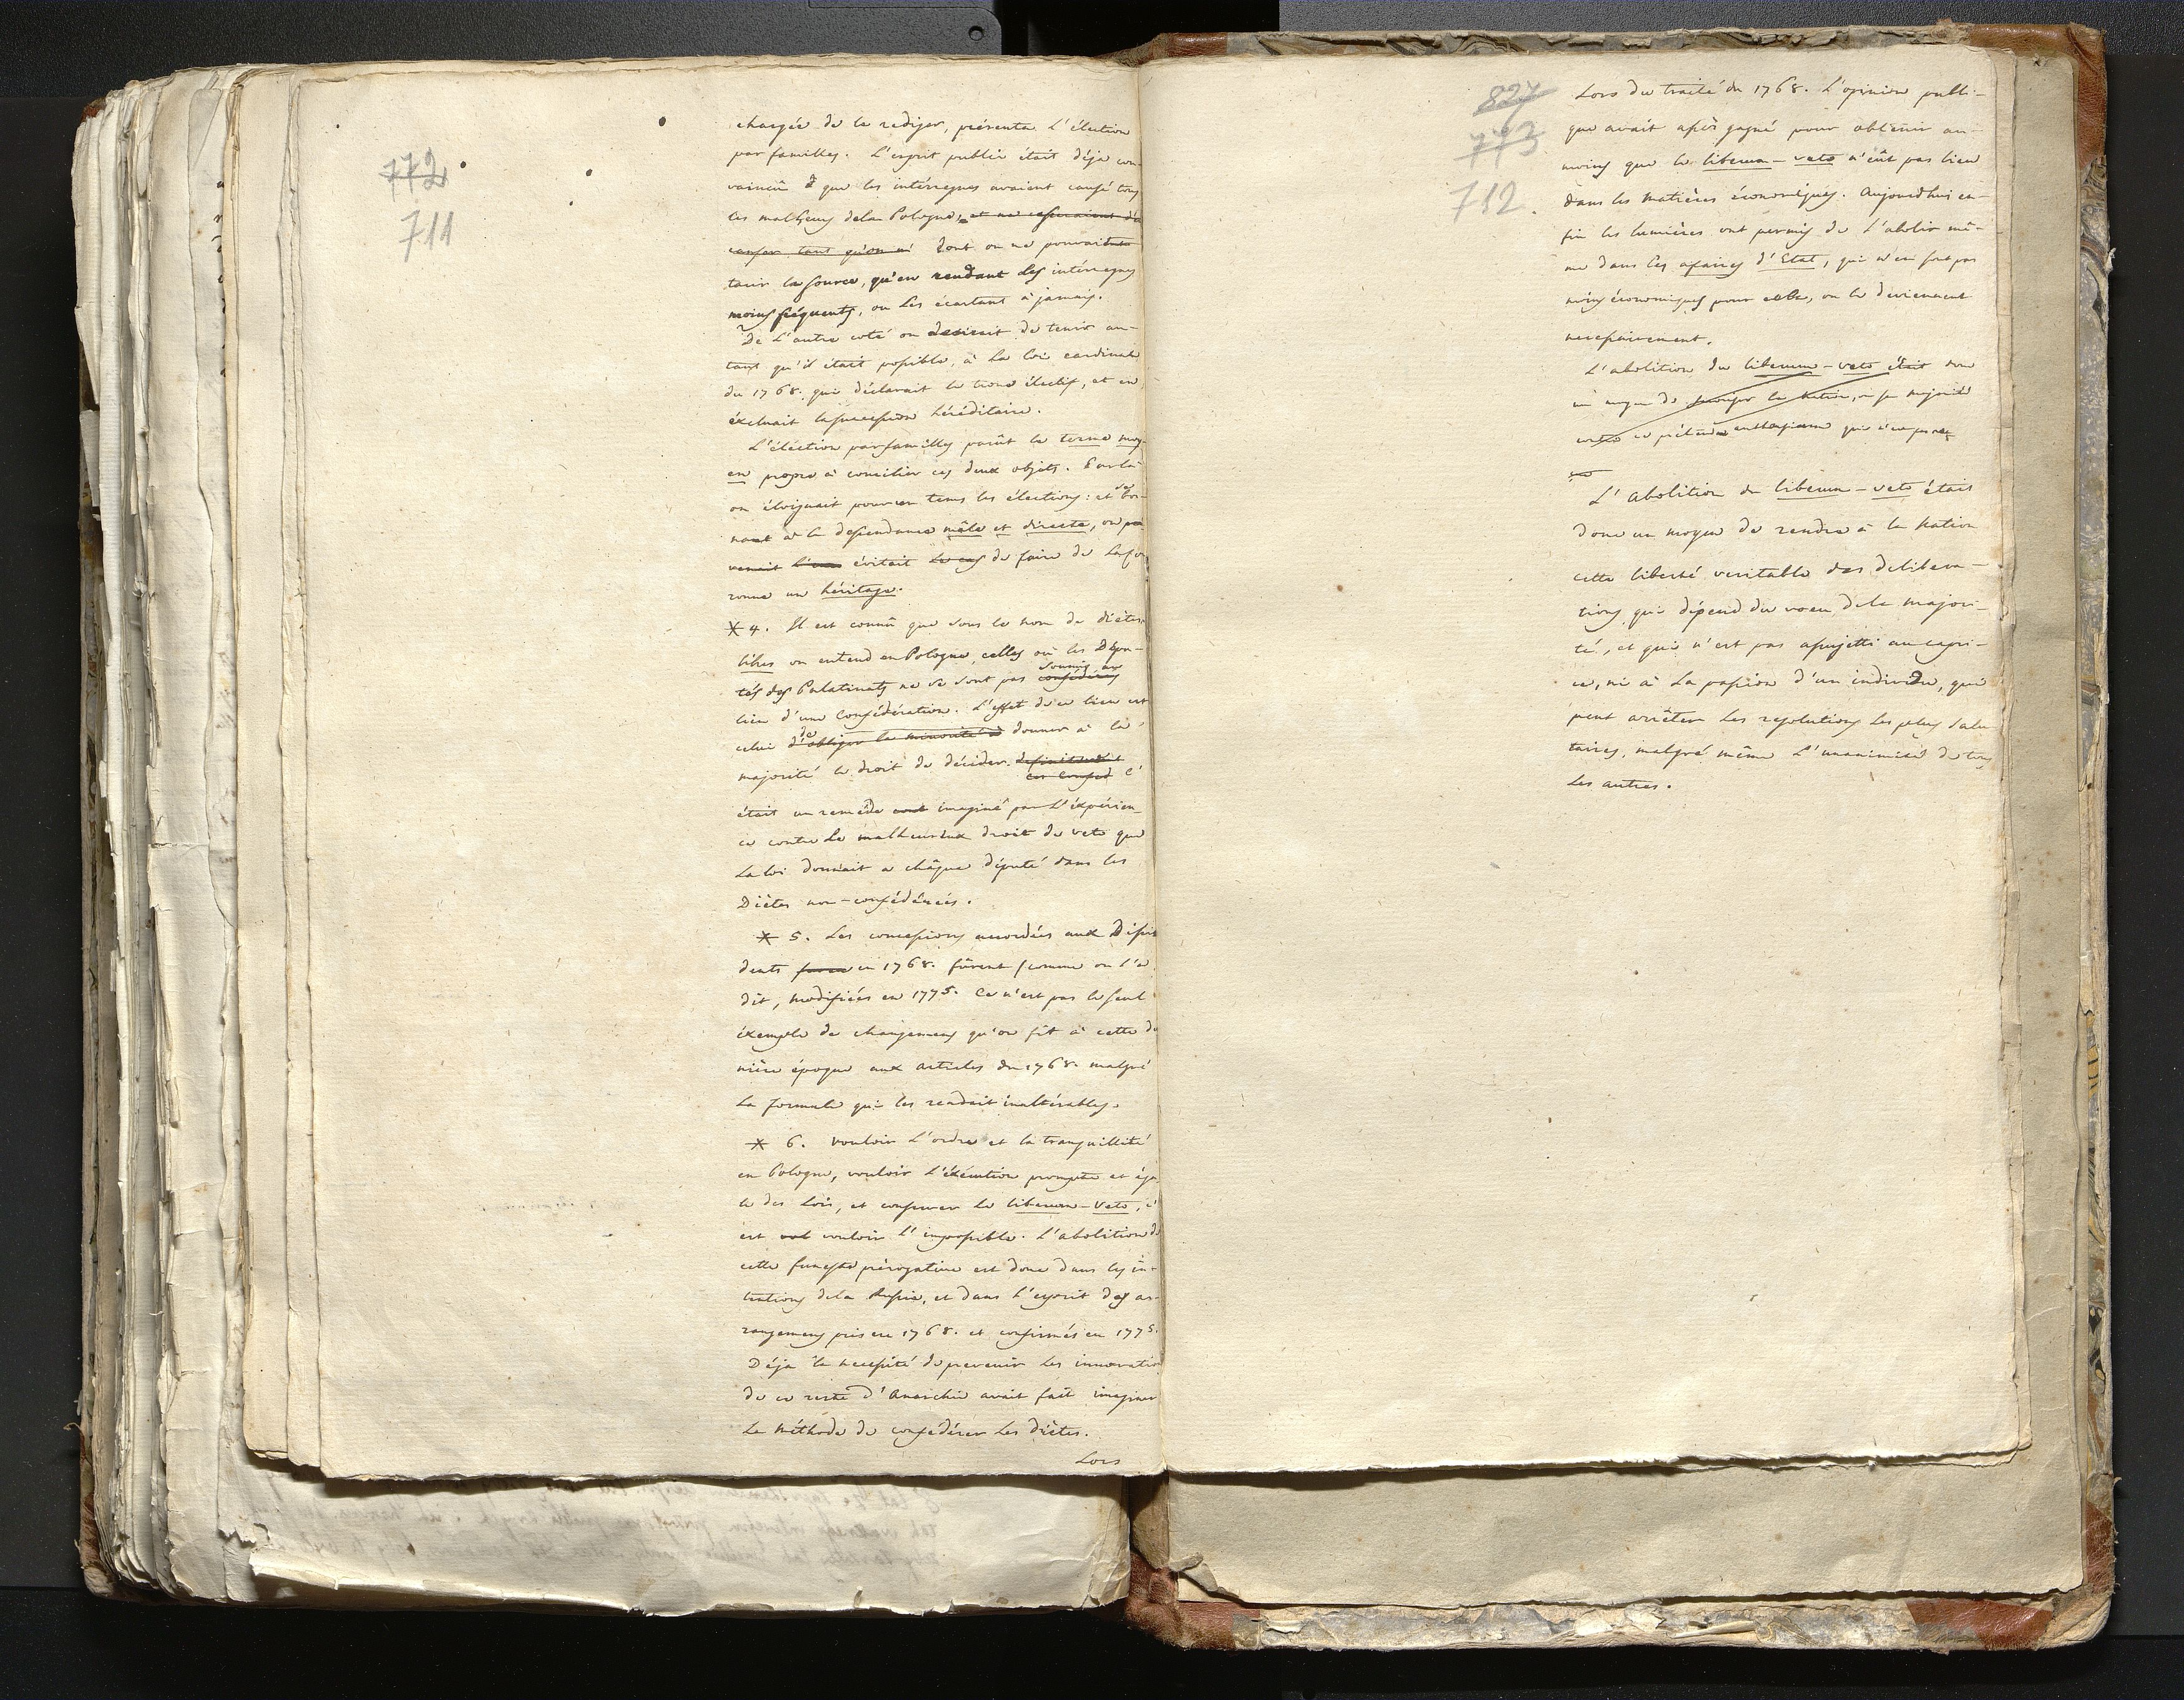 772
711
chargée de la rediger, présenta L'élection
par familles. L'esprit public était déja con-
vaincû que les intérregnes avaient causé tous
les malheurs dela Pologne, et ne cesseraient d'en
causer tant qu'on dont on ne pouvait
tarir la source, qu'en rendant les intérregnes
moins fréquents, ou Les écartant à jamais.
De L'autre coté on desirait de tenir au-
tant qu'il était possible, à La loi cardinale
de 1768. qui déclarait le trone électif, et en
éxcluait la succession héréditaire.
L'élection par familles parût le terme moy-
en propre à concilier ces deux objets. Par là
on éloignait pour un tems les élections: et se bor-
nant à la descendance mâle et directe, on
évitait le cas de faire de La cou
ronne un héritage.
* 4. Il est connû que sous le nom de diètes
libres on entend en Pologne, celles où les Dépu-
tés des Palatinats ne se sont pas confédérés soumis au
lien d'une Confédération. L'effet de ce lien est
celui d'obliger la minorité à de donner à la
majorité le droit de décider. définitivement
est Conféd C'
était un remède imaginé par L'éxpérien-
ce contre Le malheureux droit de veto que
La loi donnait a châque député dans les
Diètes non-confédérées.
* 5. Les concessions accordées aux Dissi
dents en 1768. fûrent (comme on l'a
dit, modifiées en 1775. Ce n'est pas le seul
éxemple de changemens qu'on fit à cette der
nière époque aux articles de 1768. malgré
La formule qui les rendait inaltérables.
* 6. Vouloir L'ordre et la tranquillité
en Pologne, vouloir L'éxécution prompte et éga
le des Lois, et conserver Le liberum-Veto, c'
est vouloir L'impossible. L'abolition de
cette funeste prérogative est donc dans les in-
tentions dela Russie, et dans L'esprit des ar-
rangemens pris en 1768. et confirmés en 1775.
Déja la necessité de prevenir Les innovations
de ce reste d'Anarchie avait fait imaginer
La Méthode de confédérer Les diètes.
Lors
827
773
712.
Lors du traité de 1768. L'opinion publi-
que avait assés gagné pour obtenir au-
moins que le liberum-veto n'eût pas lieu
dans les matières économiques. Aujourdhui en-
fin les lumières ont permis de L'abolir mê-
me dans les afaires d'Etat, qui n'en sont pas
moins économiques pour cela, ou le deviennent
necessairement.
L'abolition du liberum-veto était donc
un moyen de la Nation, sa majorité
contre ce prétendu enthousiasme qui
L'Abolition du liberum-veto était
donc un moyen de rendre à la Nation
cette liberté veritable des delibera-
tions, qui dépend du voeu dela majori-
té, et qui n'est pas assujetti au capri-
ce, ni à La passion d'un individu, qui
peut arrêter Les resolutions Les plus salu
taires, malgré même L'unanimité de tous
Les autres.